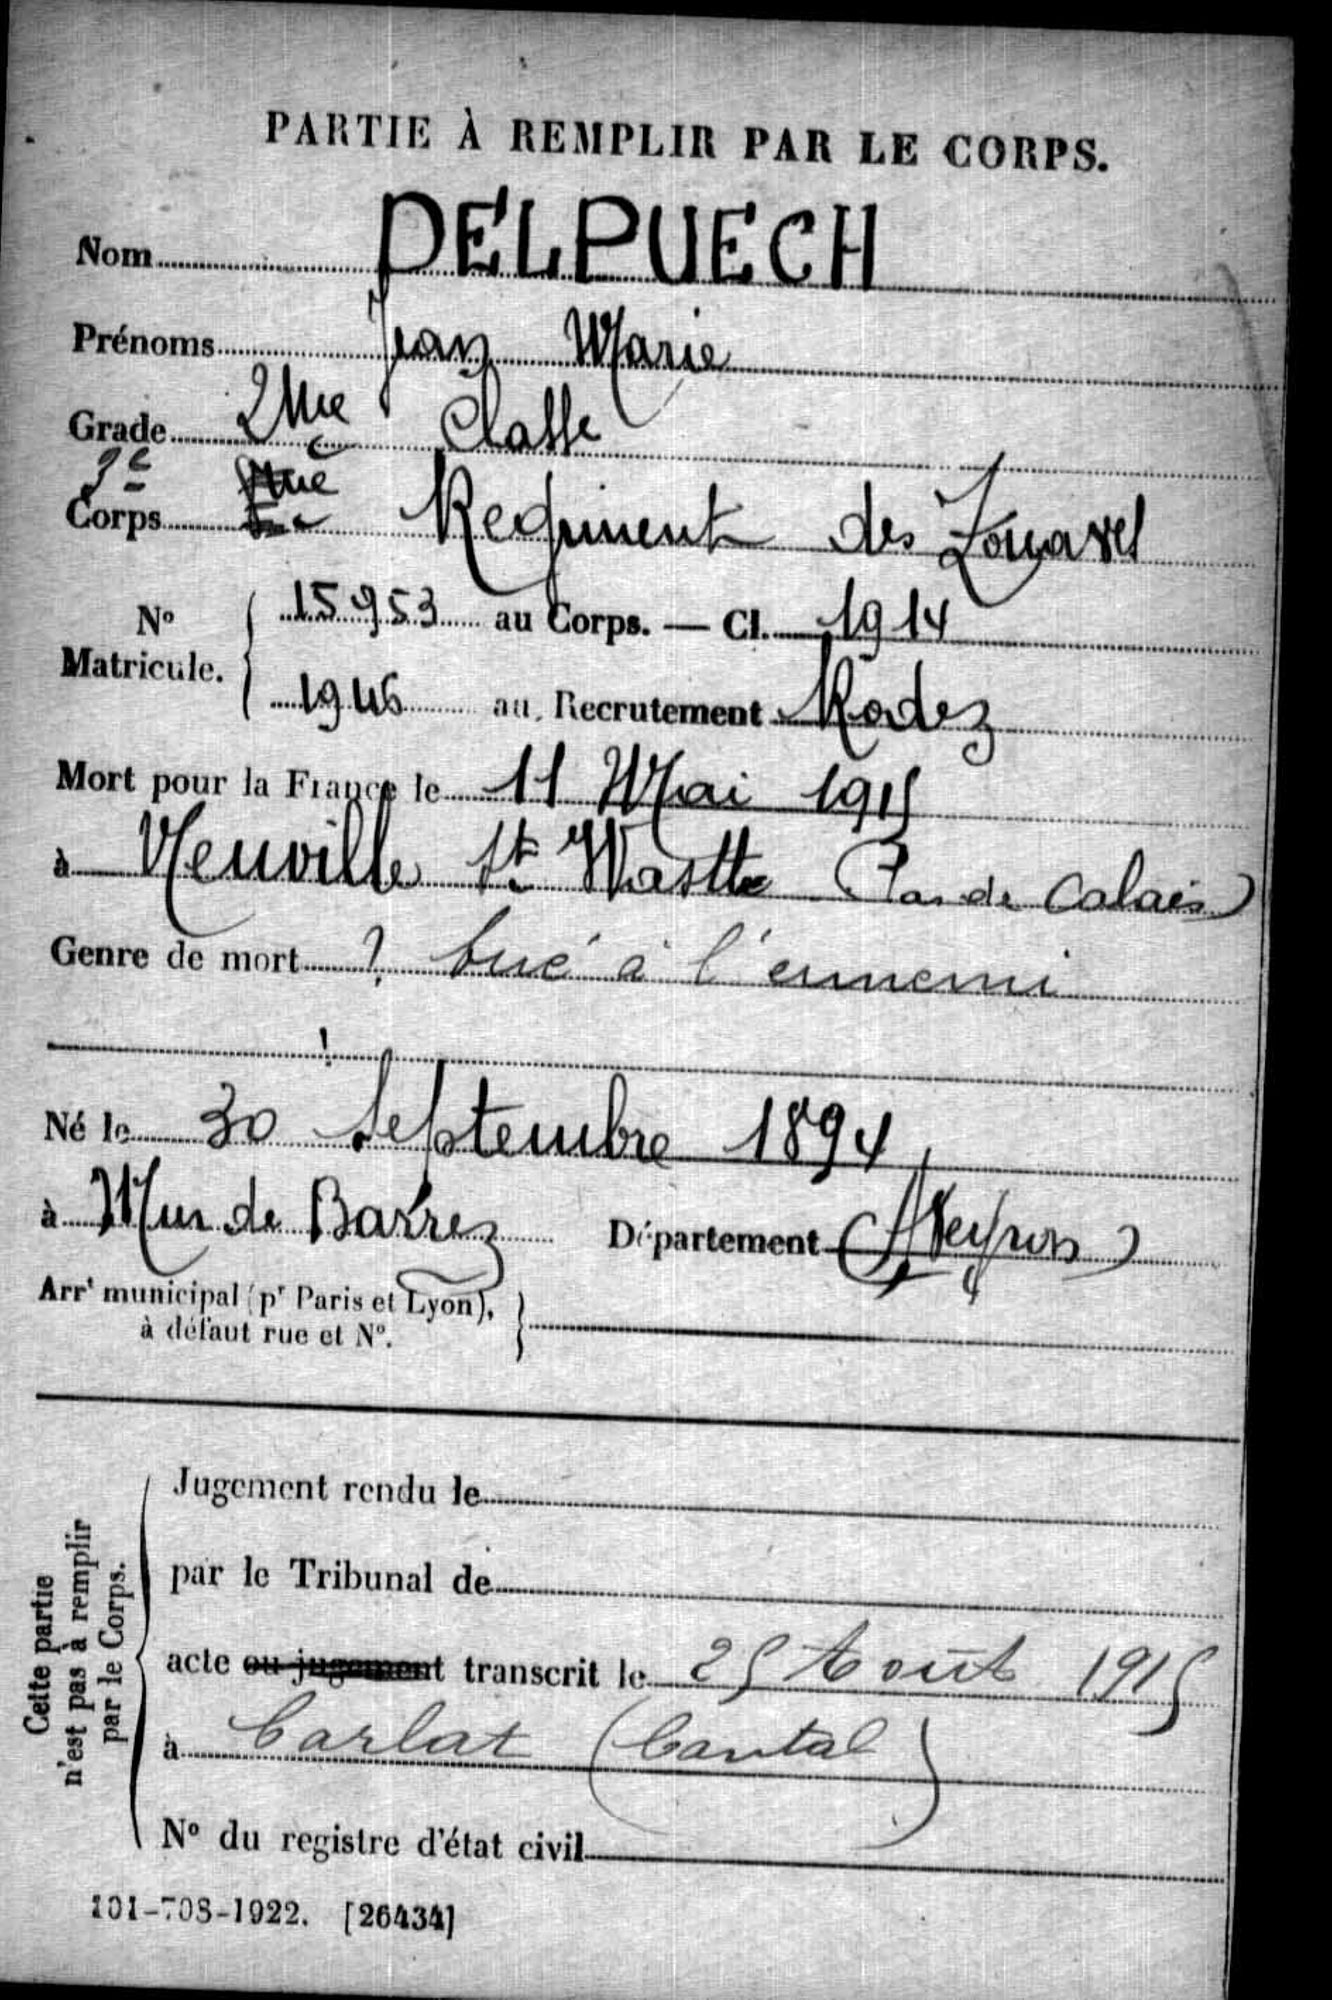 PARTIE À REMPLIR PAR LE CORPS.
Nom DELPUECH
Prénoms Jean Marie
Grade 2me Classe
Corps 3e Regiment des Zouaves
No Matricule. 15953 au Corps. — Cl. 1914
1946 au Recrutement Rodez
Mort pour la France le 11 Mai 1915
à Neuville St Wastte (Pas de Calais)
Genre de mort ? tué à l'ennemi
Né le 30 Septembre 1894
à Mur de Barrez Département (Aveyron)
Arrt municipal (pr Paris et Lyon),
à défaut rue et No.
Cette partie
n'est pas à remplir
par le Corps.
Jugement rendu le
par le Tribunal de
acte ou jugement transcrit le 25 Août 1915
à Carlat (Cantal)
No du registre d'état civil
101-708-1922. [26434]